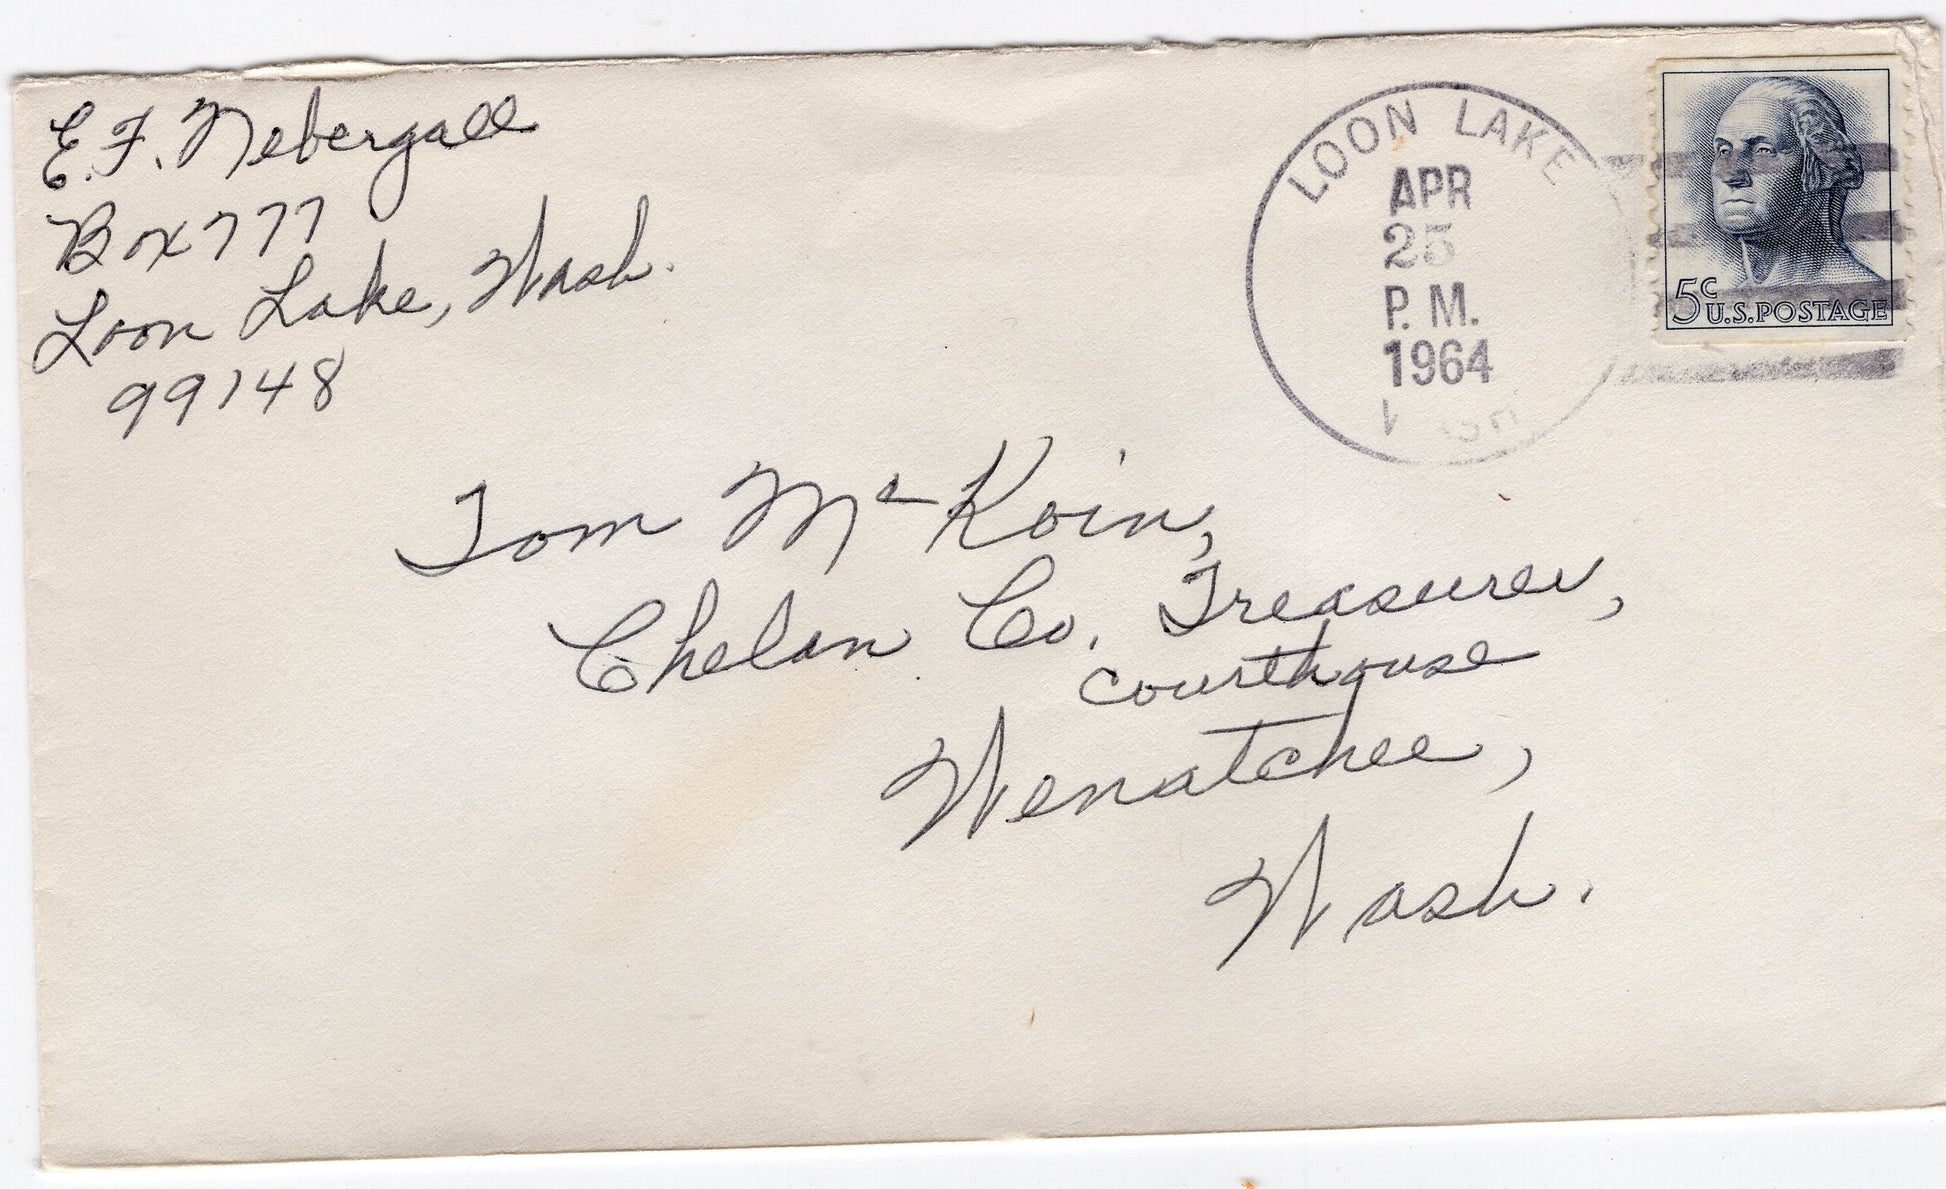 E. F. Nebergall
Box 777
Loon Lake, Wash.
99148
LOON LAKE
APR
25
P. M.
1964
5c U.S. POSTAGE
Tom Mc Koin,
Chelan Co. Treasurer,
courthouse
Wenatchee,
Wash.